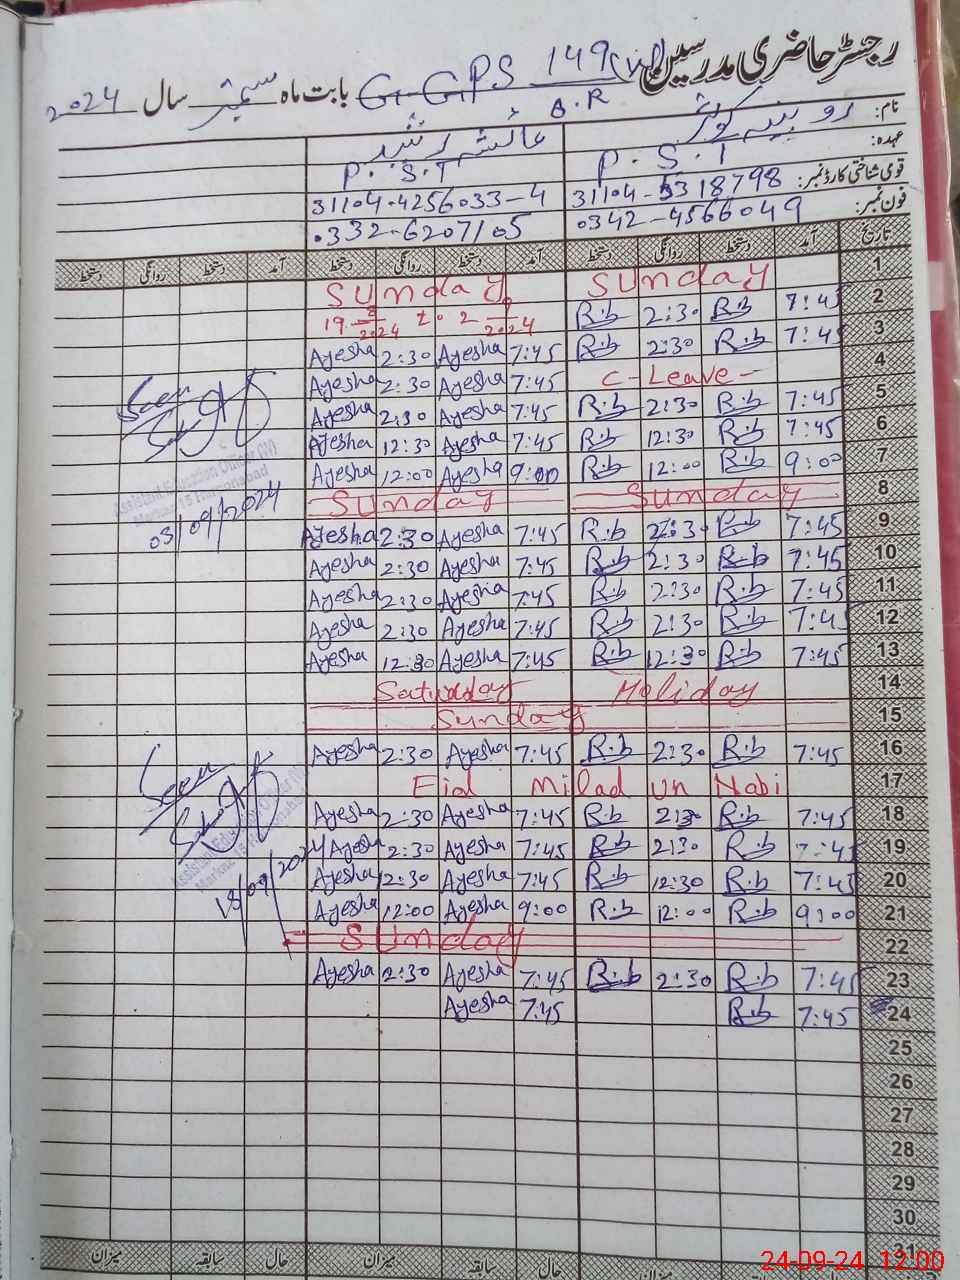 رجسٹر حاضری مدرسین G-GPS 149 بابت ماہ ستمبر سال 2024
B.R
نام: روبینہ کوثر عائشہ رشید
عہدہ: P.S.T P.S.T
قومی شناختی کارڈ نمبر: 31104-5318798 31104-4256033-4
فون نمبر: 0342-4566049 0332-6207105
تاریخ آمد دستخط روانگی دستخط آمد دستخط روانگی دستخط آمد دستخط روانگی دستخط
1 Sunday Sunday
2 7:45 R.b 2:30 R.b 19 2024 to 2 9 2024
3 7:45 R.b 2:30 R.b 7:45 Ayesha 2:30 Ayesha
4 C-Leave- 7:45 Ayesha 2:30 Ayesha
5 7:45 R.b 2:30 R.b 7:45 Ayesha 2:30 Ayesha
6 7:45 R.b 12:30 R.b 7:45 Ayesha 12:30 Ayesha
7 9:00 R.b 12:00 R.b 9:00 Ayesha 12:00 Ayesha
8 Sunday Sunday
9 7:45 R.b 2:30 R.b 7:45 Ayesha 2:30 Ayesha
10 7:45 R.b 2:30 R.b 7:45 Ayesha 2:30 Ayesha
11 7:45 R.b 2:30 R.b 7:45 Ayesha 2:30 Ayesha
12 7:45 R.b 2:30 R.b 7:45 Ayesha 2:30 Ayesha
13 7:45 R.b 12:30 R.b 7:45 Ayesha 12:30 Ayesha
14 Saturday Holiday
15 Sunday
16 7:45 R.b 2:30 R.b 7:45 Ayesha 2:30 Ayesha
17 Eid Milad un Nabi
18 7:45 R.b 2:30 R.b 7:45 Ayesha 2:30 Ayesha
19 7:45 R.b 2:30 R.b 7:45 Ayesha 2:30 Ayesha
20 7:45 R.b 12:30 R.b 7:45 Ayesha 12:30 Ayesha
21 9:00 R.b 12:00 R.b 9:00 Ayesha 12:00 Ayesha
22 Sunday
23 7:45 R.b 2:30 R.b 7:45 Ayesha 2:30 Ayesha
24 7:45 R.b 7:45 Ayesha
25
26
27
28
29
30
31
حال سابقہ میزان حال سابقہ میزان
Seen
Assistant Education Officer (W)
Markaz 15 Haroonabad
03/09/2024
Seen
Assistant Education Officer (W)
Markaz 15 Haroonabad
18/09/2024
24-09-24 12:00